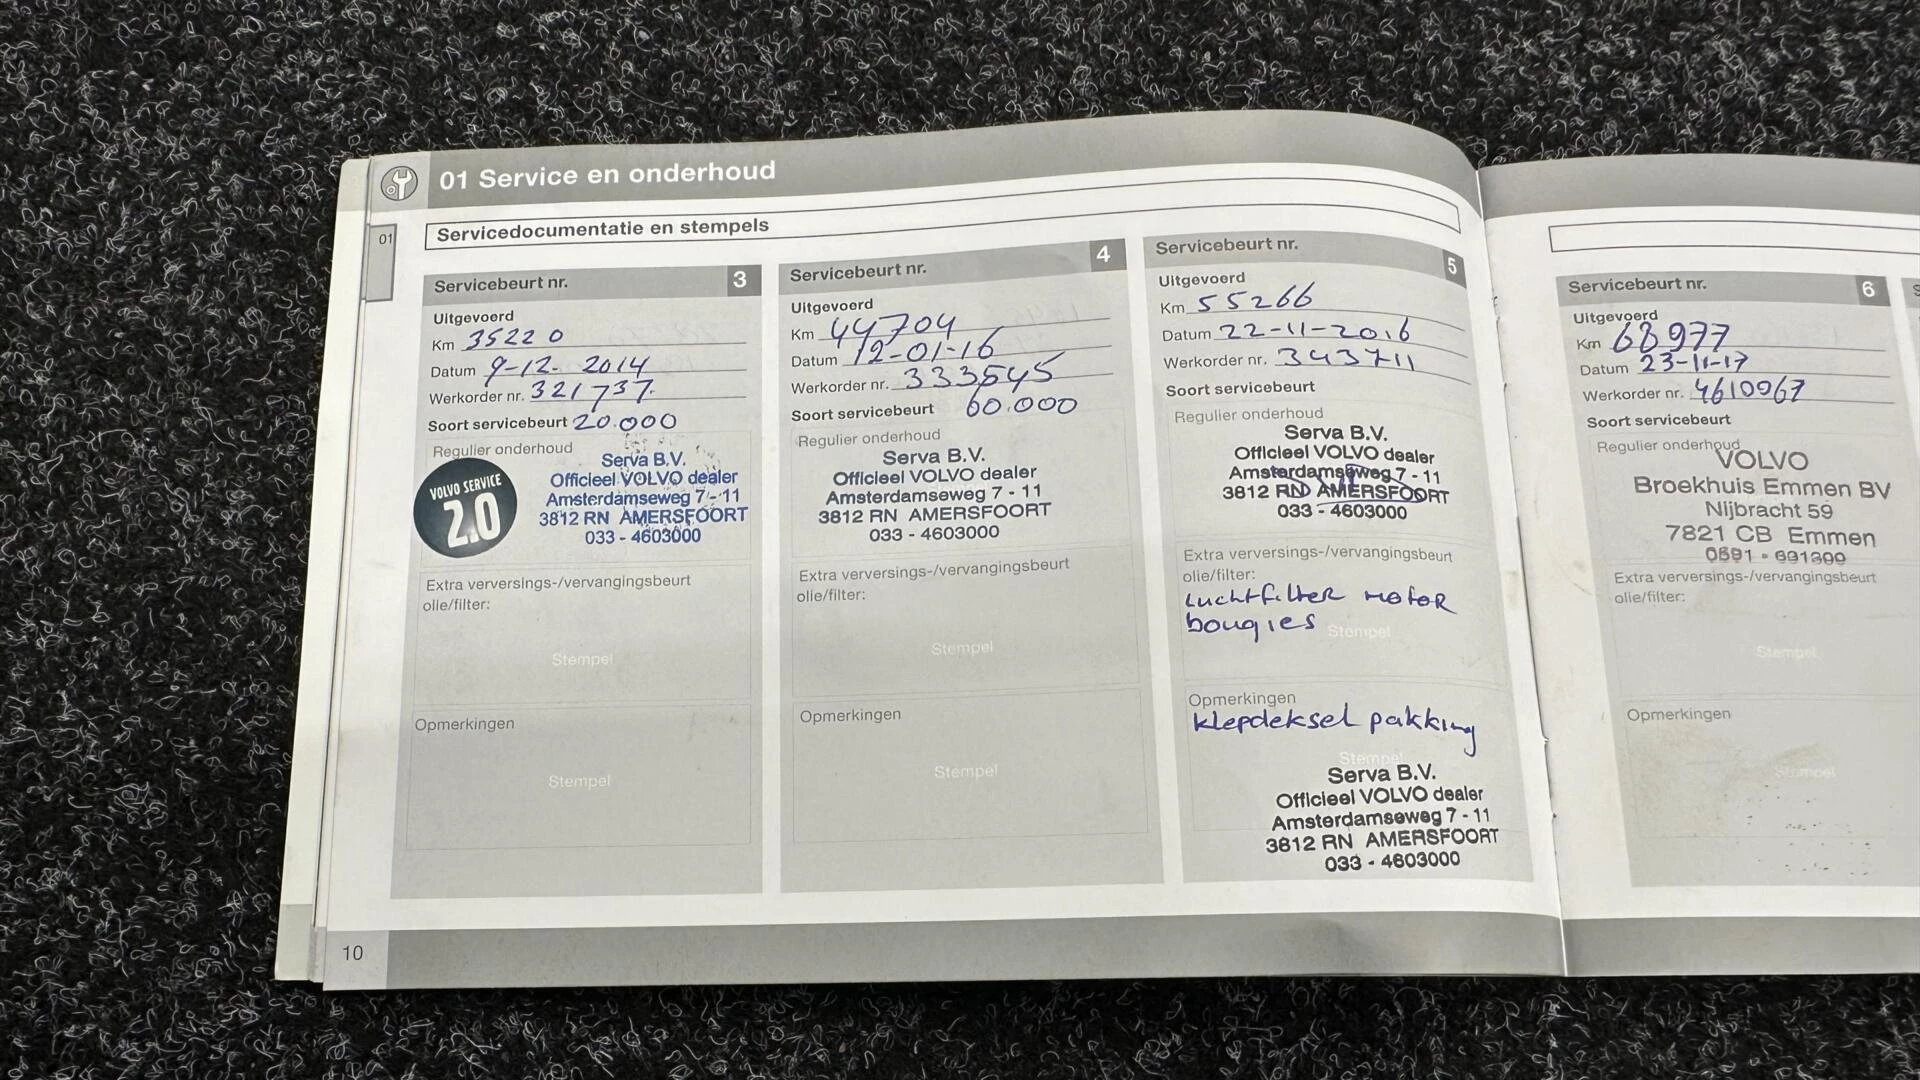 01 Service en onderhoud
01
Servicedocumentatie en stempels
Servicebeurt nr. 3
Uitgevoerd
Km 35220
Datum 9-12-2014
Werkorder nr. 321737.
Soort servicebeurt 20.000
Regulier onderhoud
VOLVO SERVICE
2.0
Serva B.V.
Officieel VOLVO dealer
Amsterdamseweg 7-11
3812 RN AMERSFOORT
033 - 4603000
Extra verversings-/vervangingsbeurt
olie/filter:
Stempel
Opmerkingen
Stempel
Servicebeurt nr. 4
Uitgevoerd
Km 44704
Datum 12-01-16
Werkorder nr. 333545
Soort servicebeurt 60.000
Regulier onderhoud
Serva B.V.
Officieel VOLVO dealer
Amsterdamseweg 7 - 11
3812 RN AMERSFOORT
033 - 4603000
Extra verversings-/vervangingsbeurt
olie/filter:
Stempel
Opmerkingen
Stempel
Servicebeurt nr. 5
Uitgevoerd
Km 55266
Datum 22-11-2016
Werkorder nr. 343711
Soort servicebeurt
Regulier onderhoud
Serva B.V.
Officieel VOLVO dealer
Amsterdamseweg 7 - 11
3812 RN AMERSFOORT
033 - 4603000
Extra verversings-/vervangingsbeurt
olie/filter:
Luchtfilter motor
bougies
Stempel
Opmerkingen
klepdeksel pakking
Stempel
Serva B.V.
Officieel VOLVO dealer
Amsterdamseweg 7 - 11
3812 RN AMERSFOORT
033 - 4603000
10
Servicebeurt nr. 6
Uitgevoerd
Km 68977
Datum 23-11-17
Werkorder nr. 4610967
Soort servicebeurt
Regulier onderhoud
VOLVO
Broekhuis Emmen BV
Nijbracht 59
7821 CB Emmen
Extra verversings-/vervangingsbeurt
olie/filter:
Stempel
Opmerkingen
Stempel